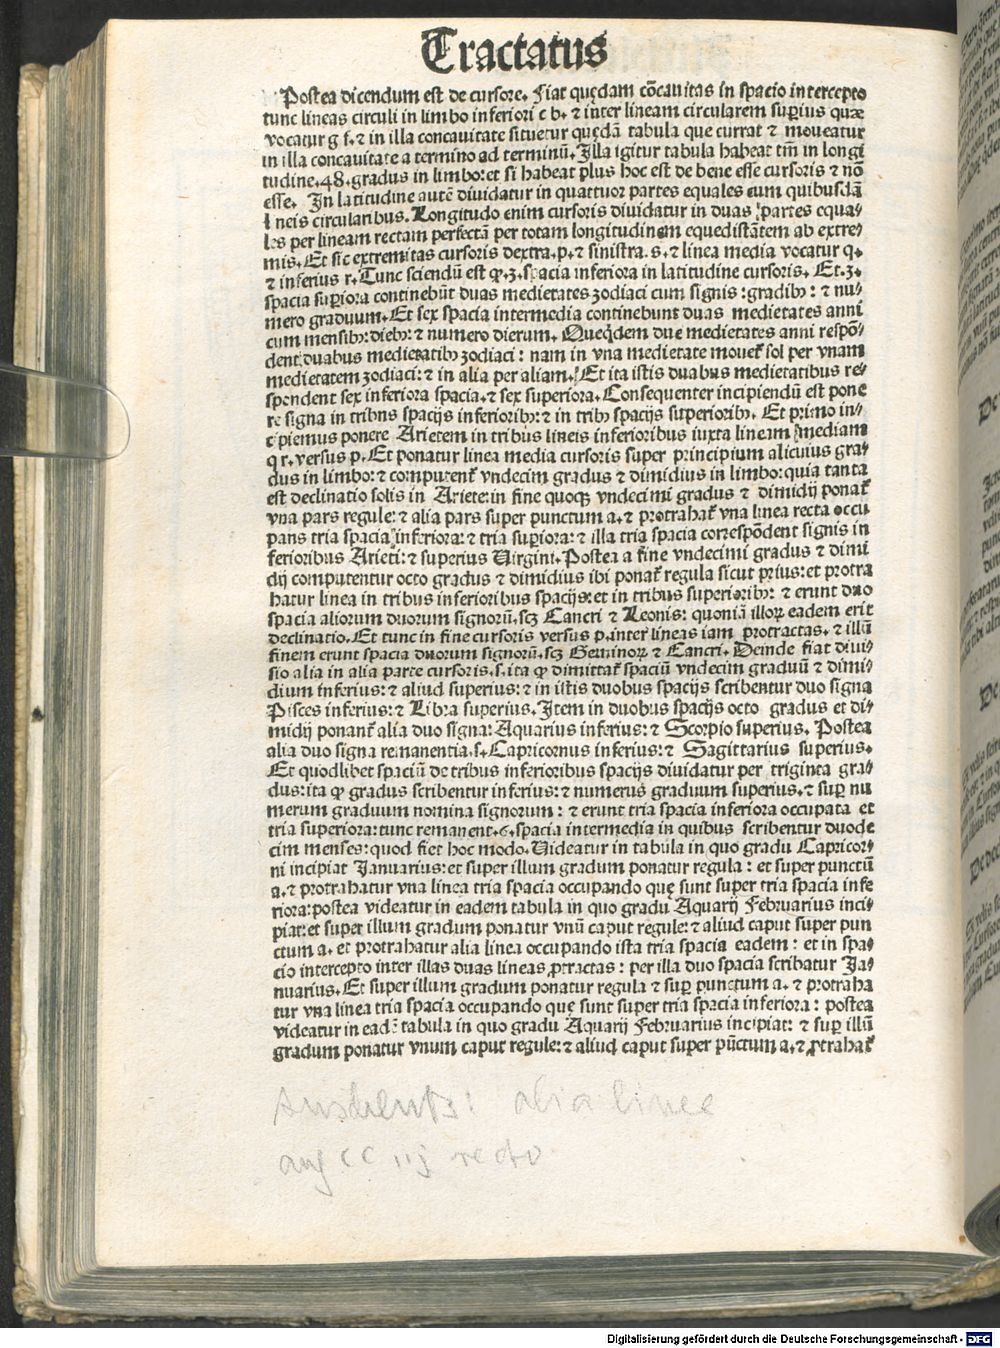 Tractatus
Postea dicendum est de cursore. Fiat quędam cōcauitas in spacio intercepto
tunc lineas circuli in limbo inferiori c b. ⁊ inter lineam circularem supius quæ
vocatur g f. ⁊ in illa concauitate situetur quędā tabula que currat ⁊ moueatur
in illa concauitate a termino ad terminū. Illa igitur tabula habeat tm̄ in longi
tudine. 48. gradus in limbo: et si habeat plus hoc est de bene esse cursoris ⁊ nō
esse. In latitudine autē diuidatur in quattuor partes equales cum quibusdā
l neis circularibus. Longitudo enim cursoris diuidatur in duas partes equa⸗
les per lineam rectam perfectā per totam longitudinem equedistātem ab extre⸗
mis. Et sic extremitas cursoris dextra. p. ⁊ sinistra. s. ⁊ linea media vocatur q.
⁊ inferius r. Tunc sciendū est ꝙ. 3. spacia inferiora in latitudine cursoris. Et. 3.
spacia supiora continebūt duas medietates zodiaci cum signis: gradibꝫ: ⁊ nu⸗
mero graduum. Et sex spacia intermedia continebunt duas medietates anni
cum mensibꝫ: diebꝫ: ⁊ numero dierum. Queqdem due medietates anni respō⸗
dent duabus medietatibꝫ zodiaci: nam in vna medietate mouet̄ sol per vnam
medietatem zodiaci: ⁊ in alia per aliam. Et ita istis duabus medietatibus re⸗
spondent sex inferiora spacia. ⁊ sex superiora. Consequenter incipiendū est pone
re signa in tribus spacijs inferioribꝫ: ⁊ in tribꝫ spacijs superioribꝫ. Et primo in⸗
cipiemus ponere Arietem in tribus lineis inferioribus iuxta lineam mediam
q r. versus p. Et ponatur linea media cursoris super principium alicuius gra⸗
dus in limbo: ⁊ computent̄ vndecim gradus ⁊ dimidius in limbo: quia tanta
est declinatio solis in Ariete: in fine quoqꝫ vndecimi gradus ⁊ dimidij ponat̄
vna pars regule: ⁊ alia pars super punctum a. ⁊ protrahat̄ vna linea recta occu
pans tria spacia inferiora: ⁊ tria supiora: ⁊ illa tria spacia correspōdent signis in
ferioribus Arieti: ⁊ superius Uirgini. Postea a fine vndecimi gradus ⁊ dimi
dij computentur octo gradus ⁊ dimidius ibi ponat̄ regula sicut prius: et protra
hatur linea in tribus inferioribus spacijs: et in tribus superioribꝫ: ⁊ erunt duo
spacia aliorum duorum signorū. scꝫ Cancri ⁊ Leonis: quoniā illoꝝ eadem erit
declinatio. Et tunc in fine cursoris versus p. inter lineas iam protractas. ⁊ illū
finem erunt spacia duorum signorū. scꝫ Geminoꝝ ⁊ Cancri. Deinde fiat diui⸗
sio alia in alia parte cursoris. s. ita ꝙ dimittat̄ spaciū vndecim graduū ⁊ dimi⸗
dium inferius: ⁊ aliud superius: ⁊ in istis duobus spacijs scribentur duo signa
Pisces inferius: ⁊ Libra superius. Item in duobus spacijs octo gradus et di⸗
midij ponant̄ alia duo signa: Aquarius inferius: ⁊ Scorpio superius. Postea
alia duo signa remanentia. s. Capricornus inferius: ⁊ Sagittarius superius.
Et quodlibet spaciū de tribus inferioribus spacijs diuidatur per triginta gra⸗
dus: ita ꝙ gradus scribentur inferius: ⁊ numerus graduum superius. ⁊ sup nu
merum graduum nomina signorum: ⁊ erunt tria spacia inferiora occupata et
tria superiora: tunc remanent. 6. spacia intermedia in quibus scribentur duode
cim menses: quod fiet hoc modo. Uideatur in tabula in quo gradu Capricor⸗
ni incipiat Januarius: et super illum gradum ponatur regula: et super punctū
a. ⁊ protrahatur vna linea tria spacia occupando quę sunt super tria spacia infe
riora: postea videatur in eadem tabula in quo gradu Aquarij Februarius inci⸗
piat: et super illum gradum ponatur vnū caput regule: ⁊ aliud caput super pun
ctum a. et protrahatur alia linea occupando ista tria spacia eadem: et in spa⸗
cio intercepto inter illas duas lineas ꝓtractas: per illa duo spacia scribatur Ja⸗
nuarius. Et super illum gradum ponatur regula ⁊ sup punctum a. ⁊ protraha
tur vna linea tria spacia occupando que sunt super tria spacia inferiora: postea
videatur in eadē tabula in quo gradu Aquarij Februarius incipiat: ⁊ sup illū
gradum ponatur vnum caput regule: ⁊ aliud caput super pūctum a. ⁊ ꝓtrahat̄
alia linee
auf CC iij recto
Digitalisierung gefördert durch die Deutsche Forschungsgemeinschaft - DFG